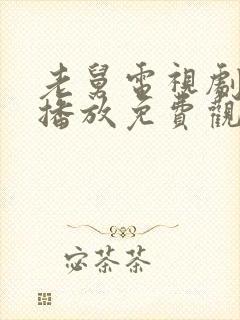 老舅電視劇
播放免費觀
宓茶茶